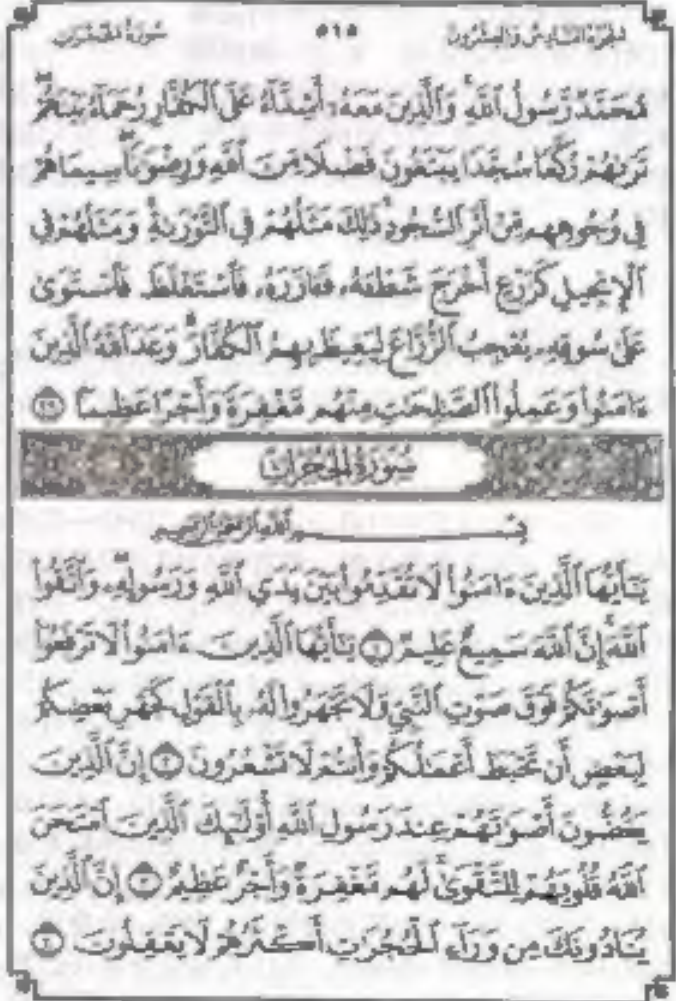 الجزء السادس والعشرون ٥١٥ سورة الحجرات
مُّحَمَّدٌ رَّسُولُ ٱللَّهِ وَٱلَّذِينَ مَعَهُۥٓ أَشِدَّآءُ عَلَى ٱلْكُفَّارِ رُحَمَآءُ بَيْنَهُمْ
تَرَىٰهُمْ رُكَّعًا سُجَّدًا يَبْتَغُونَ فَضْلًا مِّنَ ٱللَّهِ وَرِضْوَٰنًا سِيمَاهُمْ
فِى وُجُوهِهِم مِّنْ أَثَرِ ٱلسُّجُودِ ذَٰلِكَ مَثَلُهُمْ فِى ٱلتَّوْرَىٰةِ وَمَثَلُهُمْ فِى
ٱلْإِنجِيلِ كَزَرْعٍ أَخْرَجَ شَطْـَٔهُۥ فَـَٔازَرَهُۥ فَٱسْتَغْلَظَ فَٱسْتَوَىٰ
عَلَىٰ سُوقِهِۦ يُعْجِبُ ٱلزُّرَّاعَ لِيَغِيظَ بِهِمُ ٱلْكُفَّارَ وَعَدَ ٱللَّهُ ٱلَّذِينَ
ءَامَنُوا۟ وَعَمِلُوا۟ ٱلصَّٰلِحَٰتِ مِنْهُم مَّغْفِرَةً وَأَجْرًا عَظِيمًۢا ٢٩
سُورَةُ الحُجُرَاتِ
بِسْمِ ٱللَّهِ ٱلرَّحْمَٰنِ ٱلرَّحِيمِ
يَٰٓأَيُّهَا ٱلَّذِينَ ءَامَنُوا۟ لَا تُقَدِّمُوا۟ بَيْنَ يَدَىِ ٱللَّهِ وَرَسُولِهِۦ وَٱتَّقُوا۟
ٱللَّهَ إِنَّ ٱللَّهَ سَمِيعٌ عَلِيمٌ ١ يَٰٓأَيُّهَا ٱلَّذِينَ ءَامَنُوا۟ لَا تَرْفَعُوٓا۟
أَصْوَٰتَكُمْ فَوْقَ صَوْتِ ٱلنَّبِىِّ وَلَا تَجْهَرُوا۟ لَهُۥ بِٱلْقَوْلِ كَجَهْرِ بَعْضِكُمْ
لِبَعْضٍ أَن تَحْبَطَ أَعْمَٰلُكُمْ وَأَنتُمْ لَا تَشْعُرُونَ ٢ إِنَّ ٱلَّذِينَ
يَغُضُّونَ أَصْوَٰتَهُمْ عِندَ رَسُولِ ٱللَّهِ أُو۟لَٰٓئِكَ ٱلَّذِينَ ٱمْتَحَنَ
ٱللَّهُ قُلُوبَهُمْ لِلتَّقْوَىٰ لَهُم مَّغْفِرَةٌ وَأَجْرٌ عَظِيمٌ ٣ إِنَّ ٱلَّذِينَ
يُنَادُونَكَ مِن وَرَآءِ ٱلْحُجُرَٰتِ أَكْثَرُهُمْ لَا يَعْقِلُونَ ٤